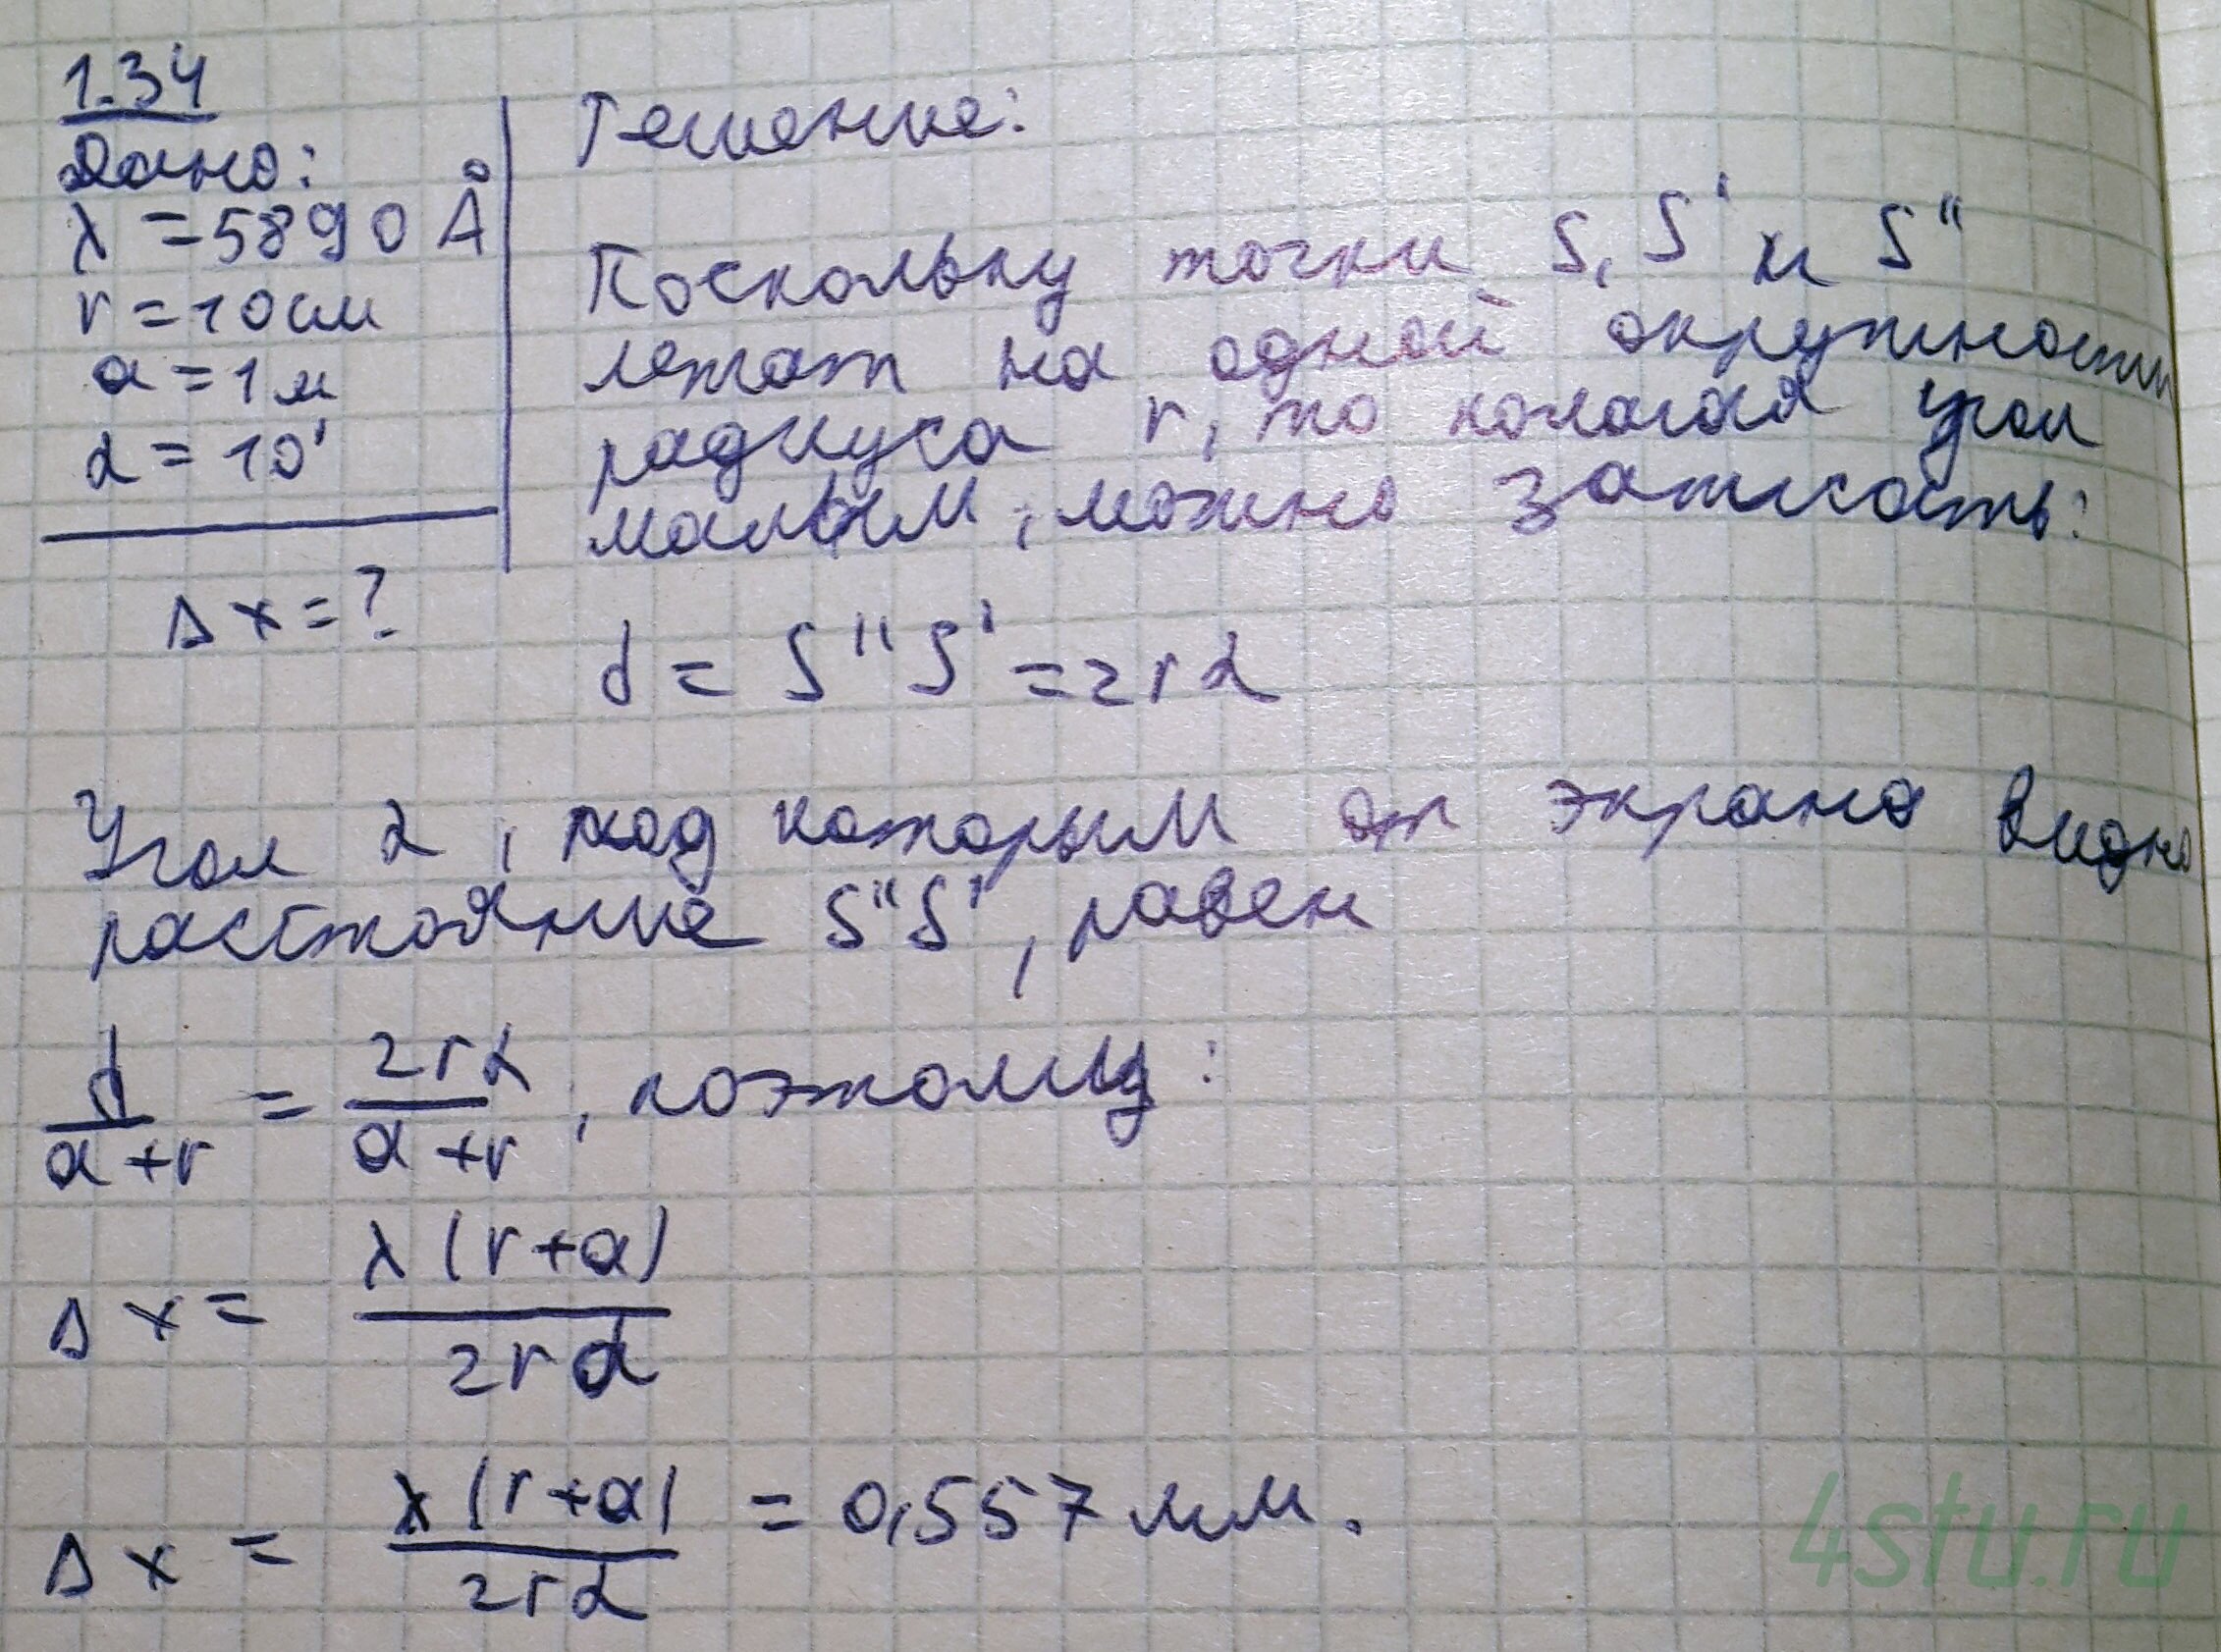 1.34
Дано:
λ = 5890 Å
r = 10 см
a = 1 м
α = 10'
Δx = ?
Решение:
Поскольку точки S, S' и S"
лежат на одной окружности
радиуса r, то полагая угол
малым, можно записать:
d = S"S' = 2rα
Угол α, под которым от экрана видно
расстояние S"S', равен
d/(a+r) = 2rα/(a+r), поэтому:
Δx = λ(r+a)/2rα
Δx = λ(r+a)/2rα = 0,557 мм.
4stu.ru